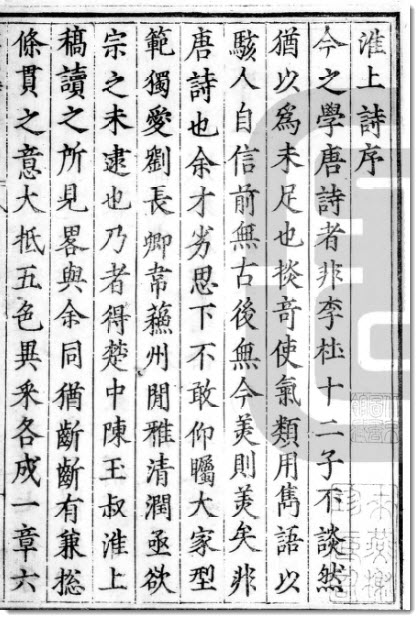 淮上詩序
今之學唐詩者非李杜十二子不談然
猶以為未足也掞竒使氣類用雋語以
駭人自信前無古後無今美則美矣非
唐詩也余才劣思下不敢仰矚大家型
範獨愛劉長卿韋蘇州閒雅清潤亟欲
宗之未逮也乃者得楚中陳玉叔淮上
稿讀之所見畧與余同猶齗齗有兼揔
條貫之意大抵五色異采各成一章六